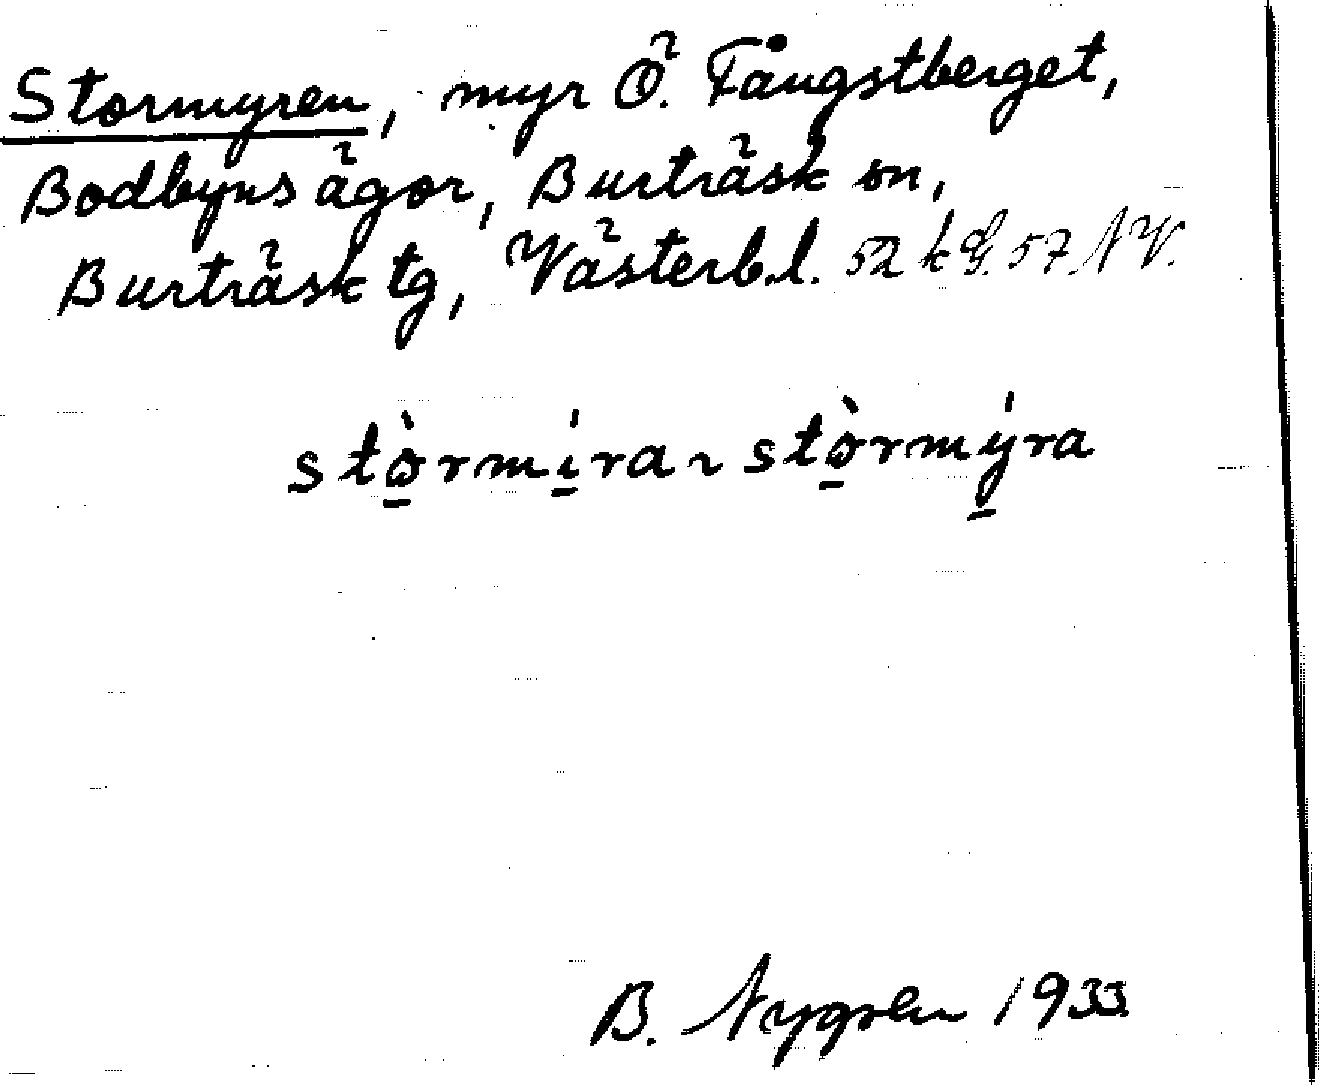 Stormyren, myr Ö. Fångstberget,
Bodbyns ägor, Burträsk sn,
Burträsk tg, Västerb.l. 52 k G. 57. NV.
stò̱rmí̱ra ~ stò̱rmý̱ra
B. Nygren 1933